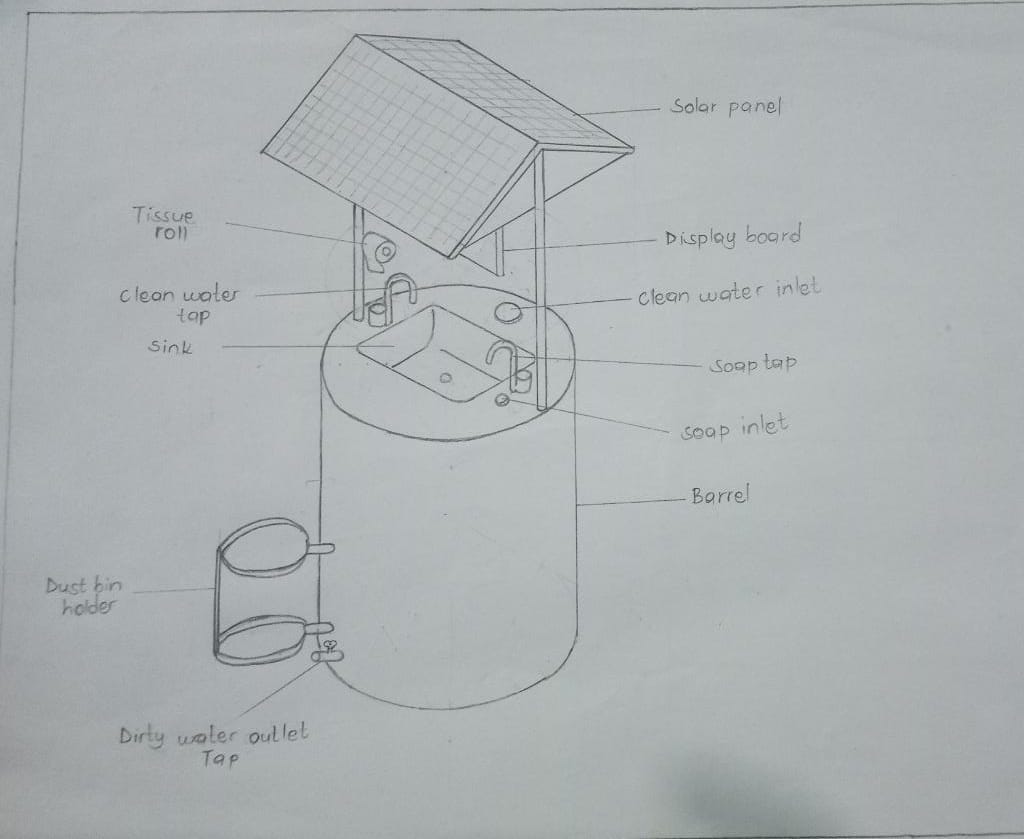 Solar panel
Tissue
roll
Display board
Clean water
tap
Clean water inlet
Sink
Soap tap
Soap inlet
Barrel
Dust bin
holder
Dirty water outlet
Tap